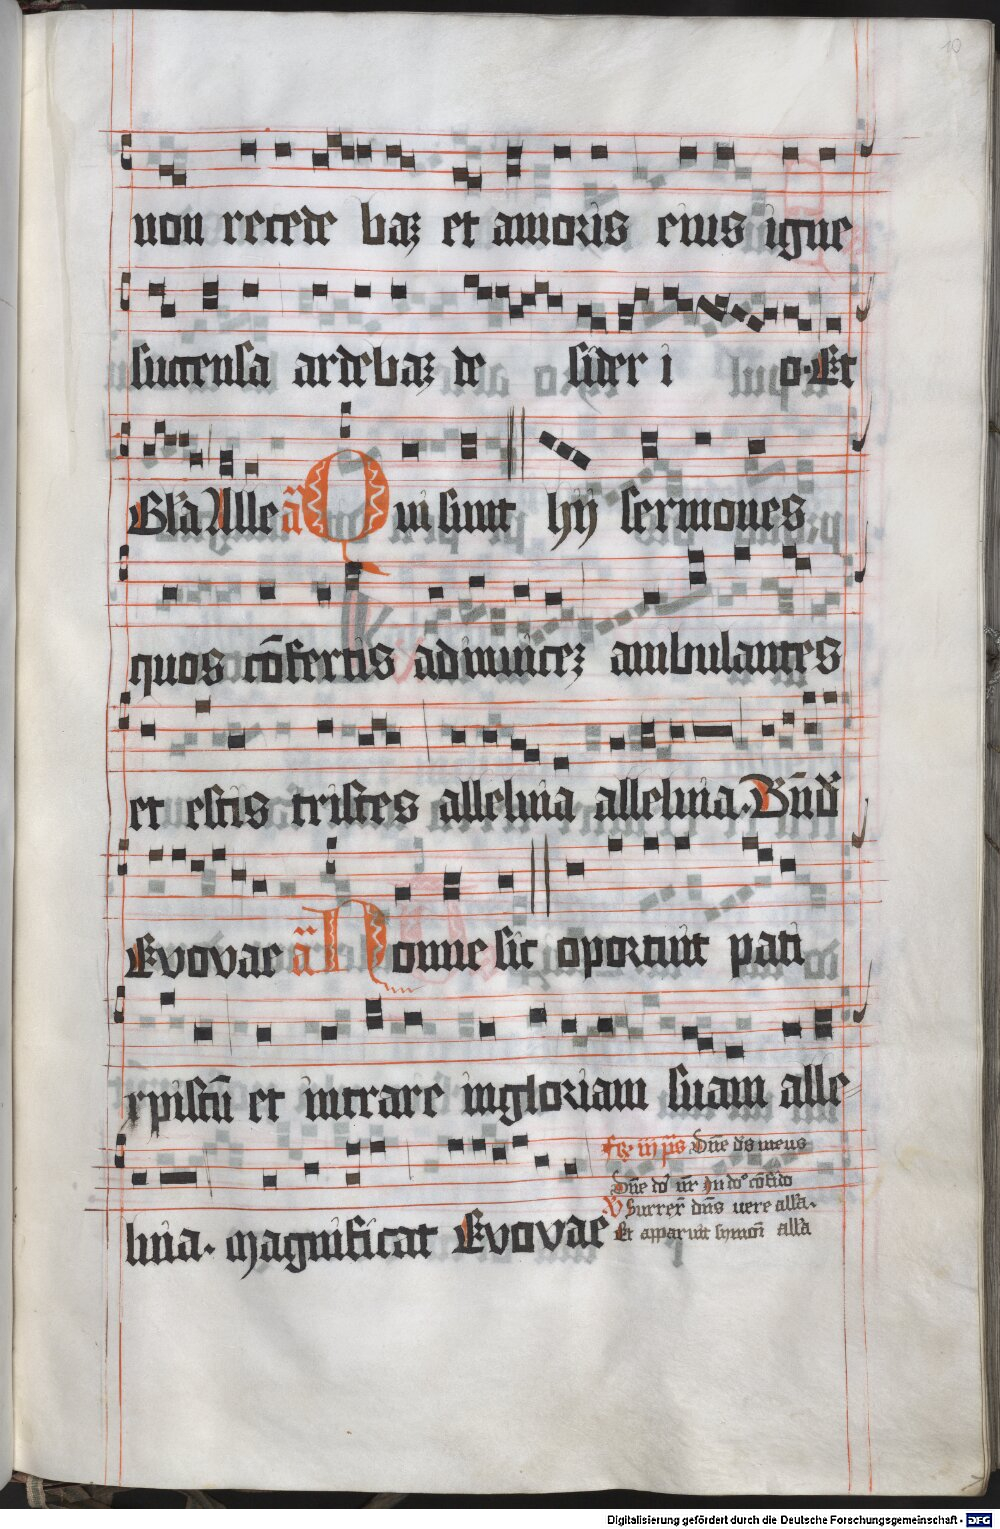 10
non recede baꝫ et amoris eius igne
succensa ardebaꝫ de sider i o. Et
Gl̄a Alle añ Qui sunt hij sermones
quos cōfertis adinuiceꝫ ambulantes
et estis tristes alleluia alleluia. Bn̄d
Evovae añ Nonne sic oportuit pati
xpistū et intrare in gloriam suam alle
luia. Magnificat Evovae
Dn̄e ds̄ meus
Dn̄e do nr̄ In do cōfido
V Surrex̄ dn̄s vere all'a.
Et apparuit symoni all'a
Digitalisierung gefördert durch die Deutsche Forschungsgemeinschaft - DFG